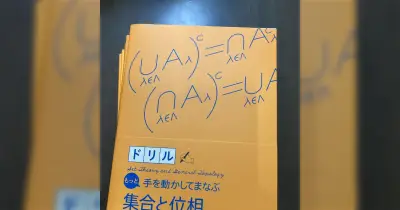 (∪A_λ)^c=∩A_λ^c
λ∈Λ λ∈Λ
(∩A_λ)^c=∪A
λ∈Λ λ∈Λ
ドリル
Set Theory and General Topology
もっと 手を動かしてまなぶ
集合と位相